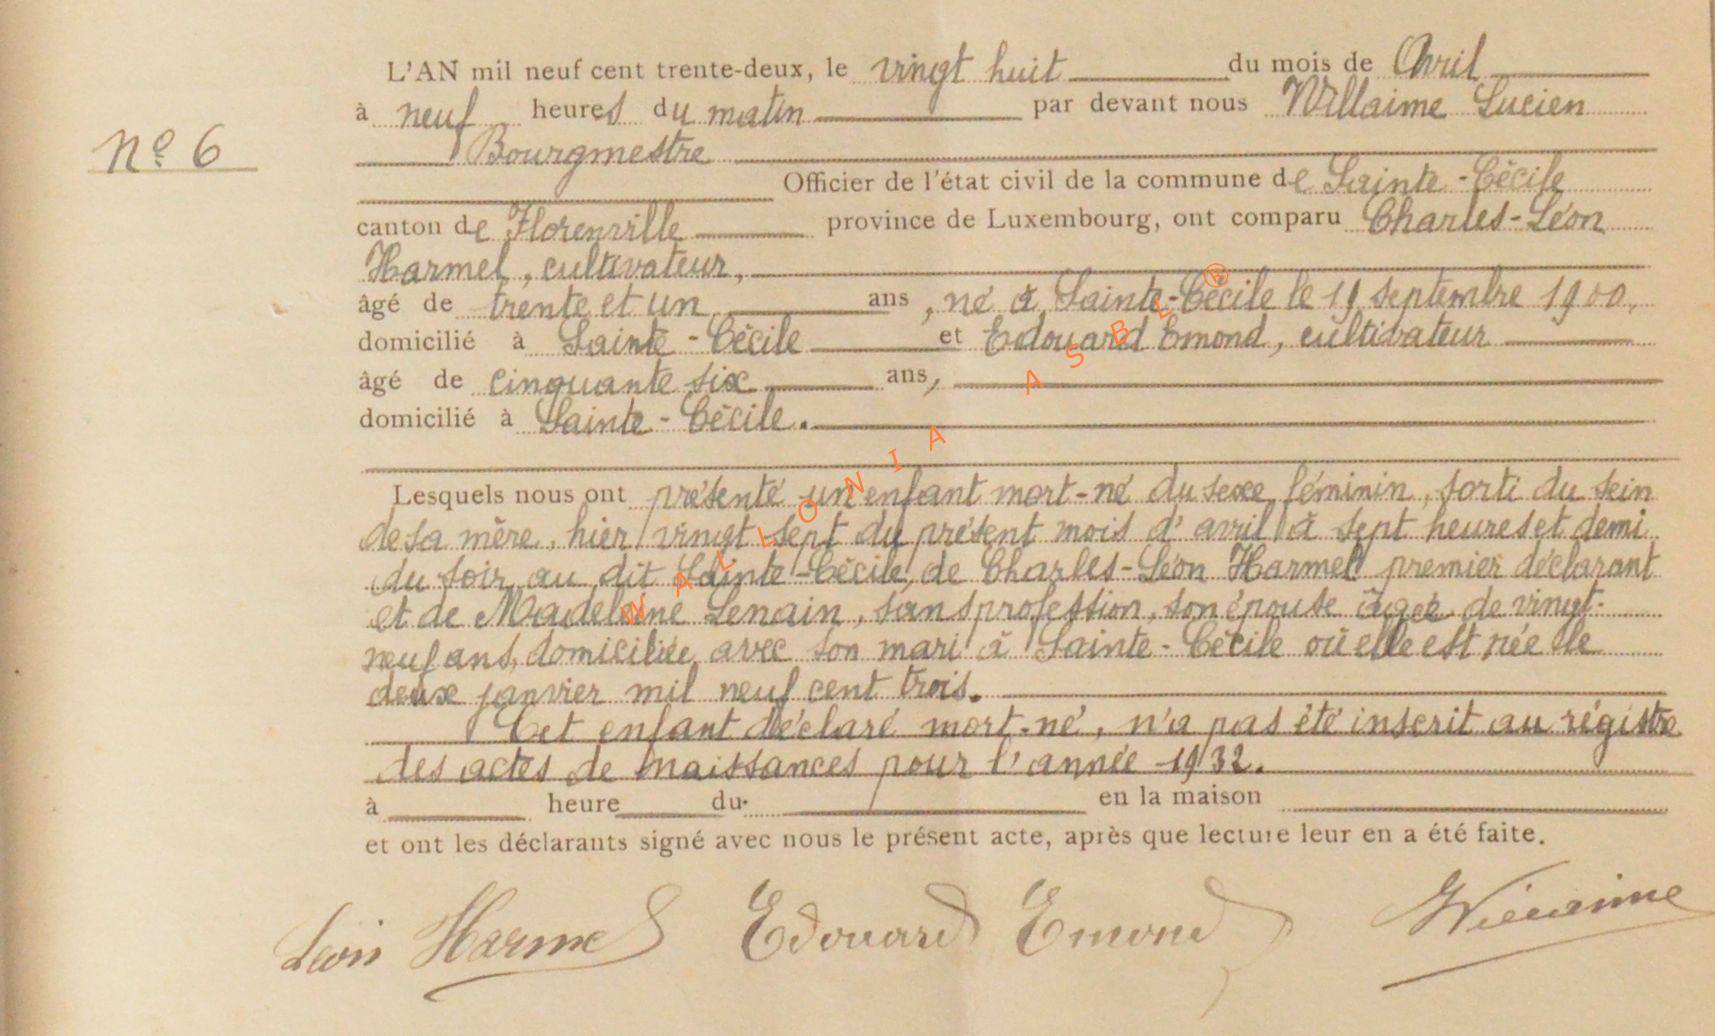 L'AN mil neuf cent trente-deux, le vingt huit du mois de Avril
à neuf heures du matin par devant nous Willaime Lucien
N° 6
Bourgmestre
Officier de l'état civil de la commune de Sainte-Cécile
canton de Florenville province de Luxembourg, ont comparu Charles-Léon
Harmel, cultivateur,
âgé de trente et un ans, né à Sainte-Cécile le 19 septembre 1900,
domicilié à Sainte-Cécile et Edouard Emond, cultivateur
âgé de cinquante six ans,
domicilié à Sainte-Cécile.
Lesquels nous ont présenté un enfant mort-né du sexe féminin, sorti du sein
de sa mère, hier vingt sept du présent mois d'avril à sept heures et demi
du soir, au dit Sainte-Cécile, de Charles-Léon Harmel premier déclarant
et de Madeleine Lenain, sans profession, son épouse âgée de vingt-
neuf ans, domiciliée avec son mari à Sainte-Cécile où elle est née le
deux janvier mil neuf cent trois.
Cet enfant déclaré mort-né, n'a pas été inscrit au régistre
des actes de naissances pour l'année 1932.
à heure du en la maison
et ont les déclarants signé avec nous le présent acte, après que lecture leur en a été faite.
Léon Harmel Edouard Emond Willaime
WALLONIA ASBL ®